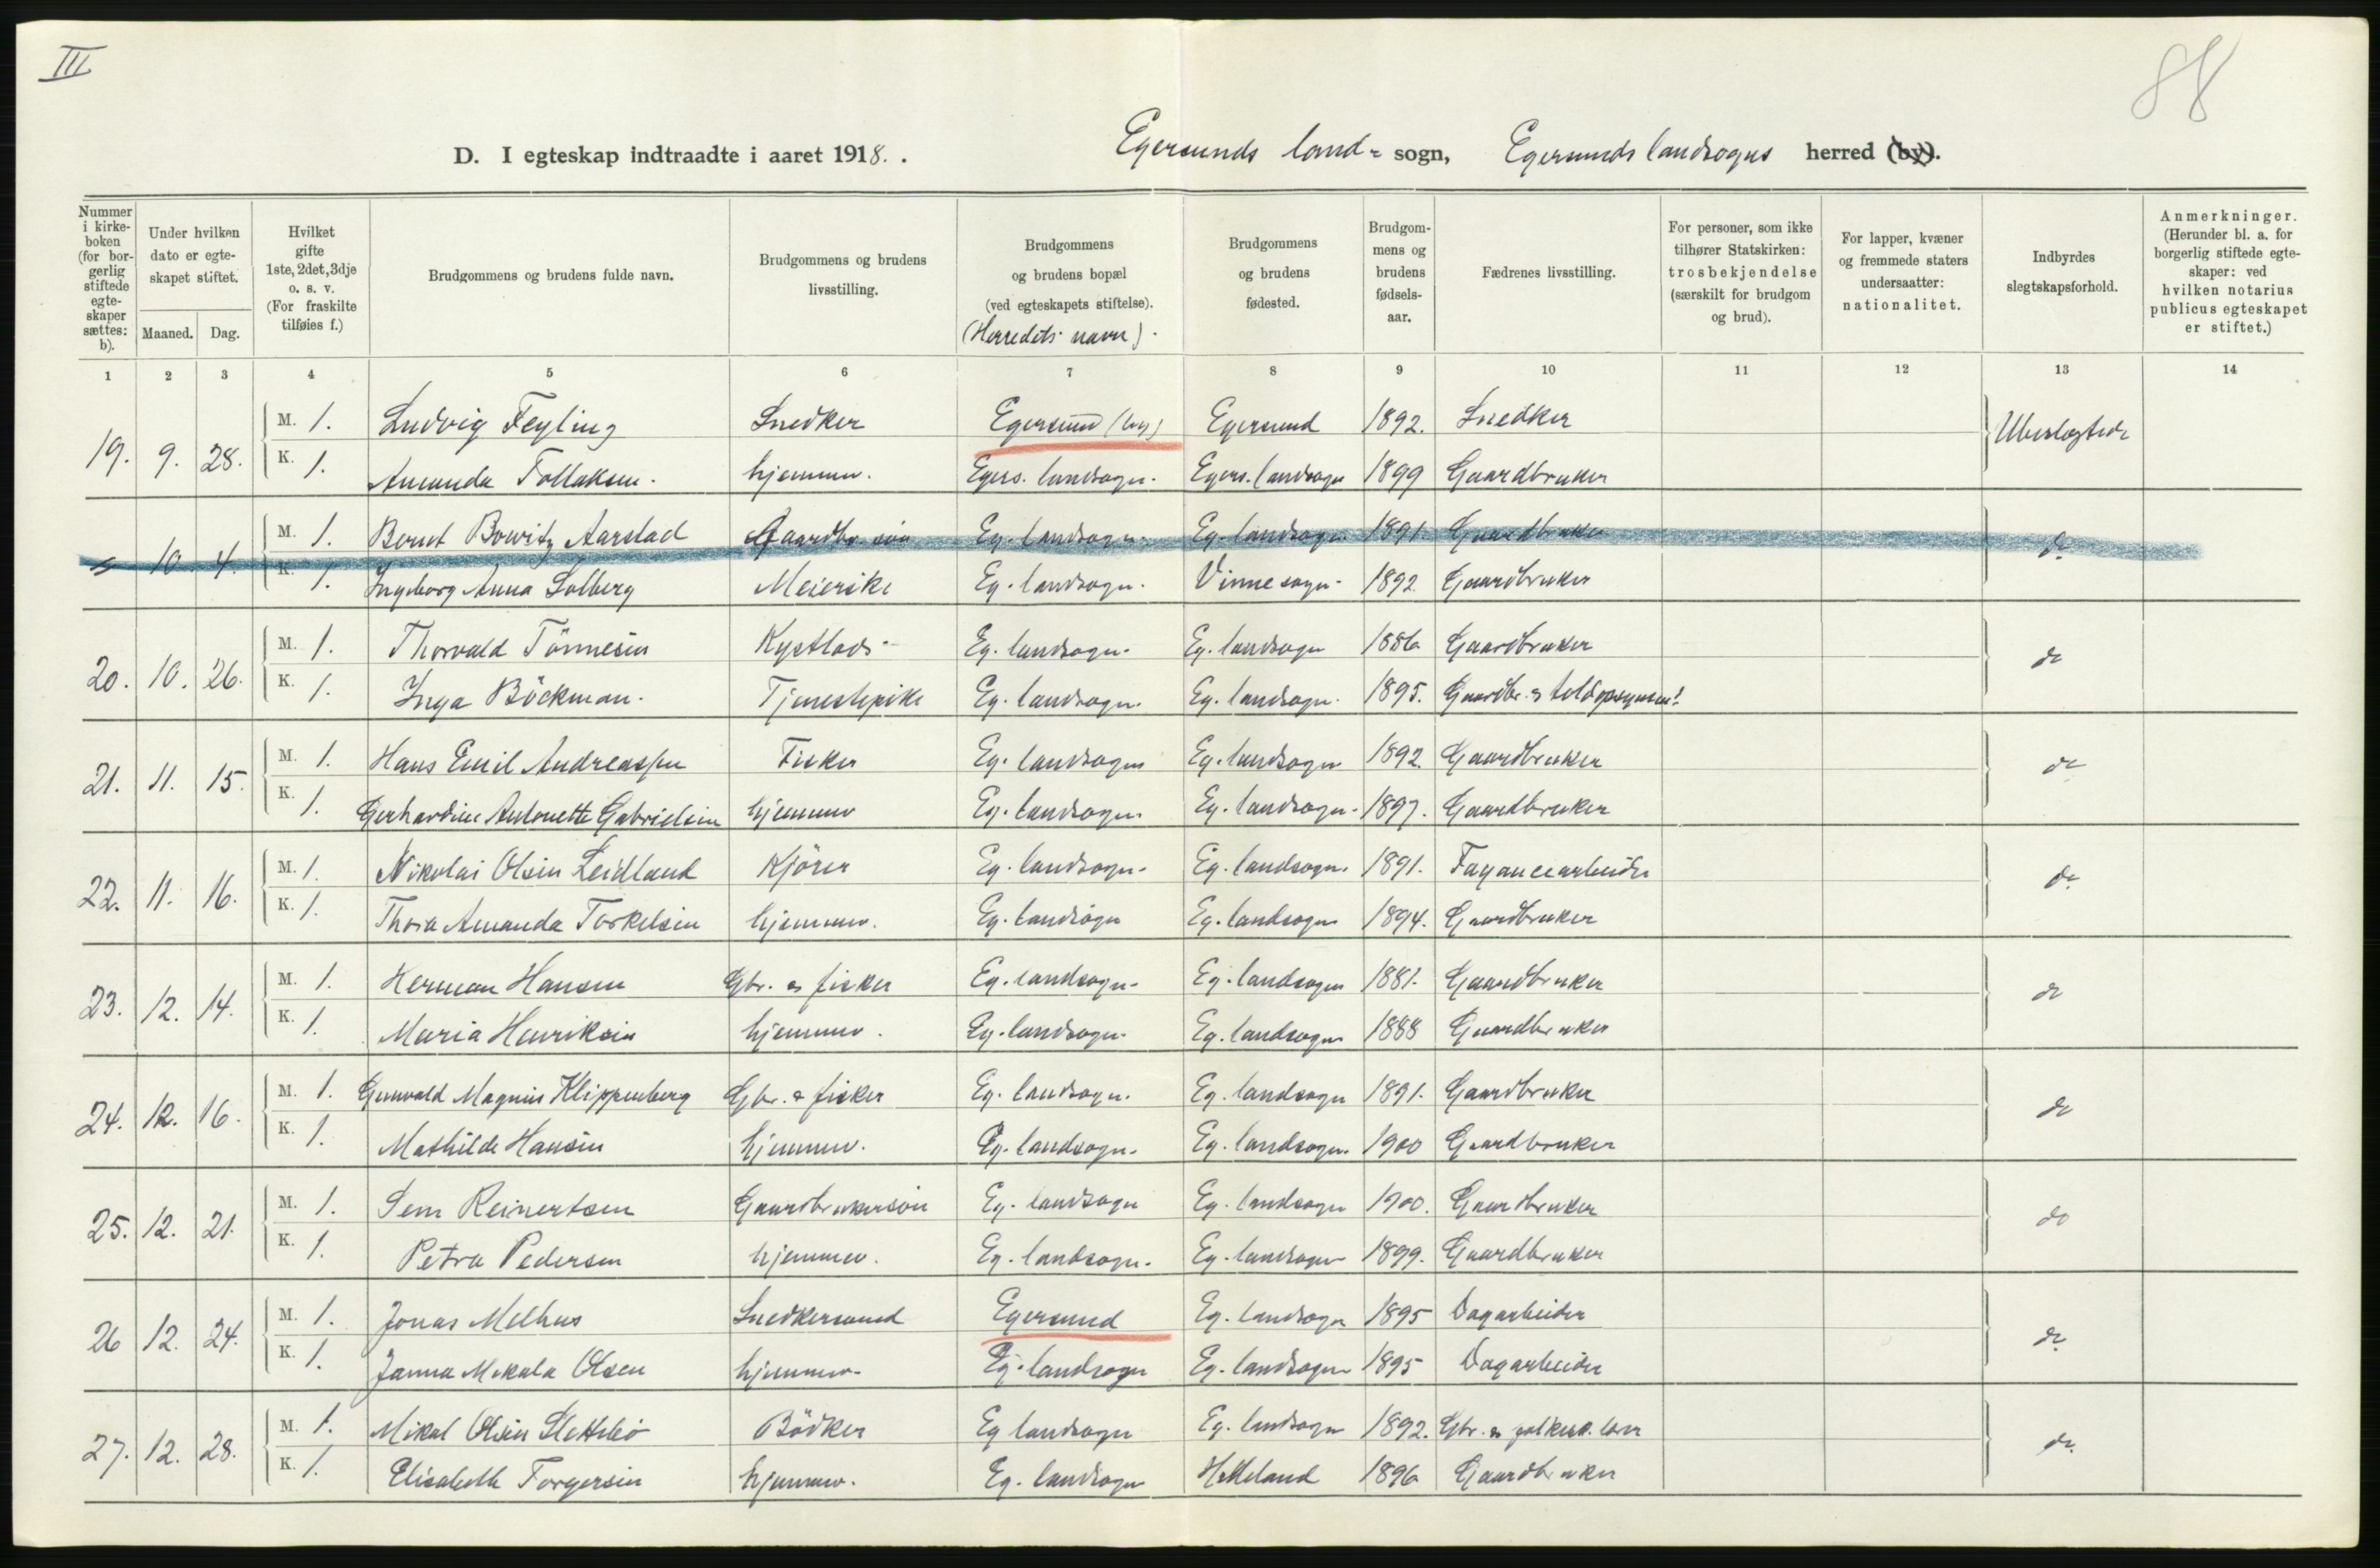 III
88
D. I egteskap indtraadte i aaret 1918. . Egersunds land= sogn, Egersunds landsogns herred (by).
Nummer i kirkeboken (for borgerlig stiftede egteskaper sættes: b).
Under hvilken dato er egteskapet stiftet.
Maaned. Dag.
Hvilket gifte 1ste, 2det, 3dje o. s. v. (For fraskilte tilføies f.)
Brudgommens og brudens fulde navn.
Brudgommens og brudens livsstilling.
Brudgommens og brudens bopæl (ved egteskapets stiftelse).
(Herredets navn).
Brudgommens og brudens fødested.
Brudgommens og brudens fødselsaar.
Fædrenes livsstilling.
For personer, som ikke tilhører Statskirken: trosbekjendelse (særskilt for brudgom og brud).
For lapper, kvæner og fremmede staters undersaatter: nationalitet.
Indbyrdes slegtskapsforhold.
Anmerkninger. (Herunder bl. a. for borgerlig stiftede egteskaper: ved hvilken notarius publicus egteskapet er stiftet.)
1 2 3 4 5 6 7 8 9 10 11 12 13 14
M. 1. Ludvig Feyling Snedker Egersund (by) Egersund 1892. Snedker
19. 9. 28. Ubeslegtede
K. 1. Amanda Tollaksen. hjemmev. Egers. landsogn. Egers. landsogn 1899 Gaardbruker
M. 1. Bernt Bowitz Aarstad Gaardbr. søn Eg. landsogn. Eg. landsogn. 1891. Gaardbruker
10. 4. do
K. 1. Ingeborg Anna Solberg Meierske Eg. landsogn. Vinne sogn 1892. Gaardbruker
M. 1. Thorvald Tönnesen Kystlods Eg. landsogn. Eg. landsogn 1886 Gaardbruker
20. 10. 26. do
K. 1. Inga Böckman. Tjenestepike Eg. landsogn. Eg. landsogn. 1895. Gaardbr. &
M. 1. Hans Emil Andreassen Fisker Eg. landsogn Eg. landsogn 1892. Gaardbruker
21. 11. 15. do
K. 1. Gerhardine Antonette Gabrielsen hjemmev Eg. landsogn. Eg. landsogn. 1897. Gaardbruker
M. 1. Nikolai Olsen Leidland Kjörer Eg. landsogn. Eg. landsogn. 1891. Fayancearbeider
22. 11. 16. do
K. 1. Thora Amanda Torkelsen hjemmev. Eg. landsogn Eg. landsogn 1894. Gaardbruker
M. 1. Herman Hansen Gbr. & fisker Eg. landsogn. Eg. landsogn 1881. Gaardbruker
23. 12. 14. do
K. 1. Maria Henriksen hjemmev. Eg. landsogn. Eg. landsogn 1888 Gaardbruker
M. 1. Gunvald Magnus Klippenberg Gbr. & fisker Eg. landsogn. Eg. landsogn 1891. Gaardbruker
24. 12. 16. do
K. 1. Mathilde Hansen hjemmev. Eg. landsogn. Eg. landsogn. 1900 Gaardbruker
M. 1. Sem Reinertsen Gaardbrukersøn Eg. landsogn Eg. landsogn 1900. Gaardbruker
25. 12. 21. do
K. 1. Petra Pedersen hjemmev. Eg. landsogn. Eg. landsogn 1899. Gaardbruker
M. 1. Jonas Melhus Snedkersvend Egersund Eg. landsogn 1895 Dagarbeider
26 12. 24. do
K. 1. Janna Mikala Olsen hjemmev. Eg. landsogn Eg. landsogn 1895 Dagarbeider
M. 1. Mikal Olsen Slettebö Bödker Eg landsogn Eg. landsogn 1892. Gbr. &
27. 12. 28. do.
K. 1. Elisabeth Torgersen hjemmev. Eg. landsogn Helleland 1896 Gaardbruker